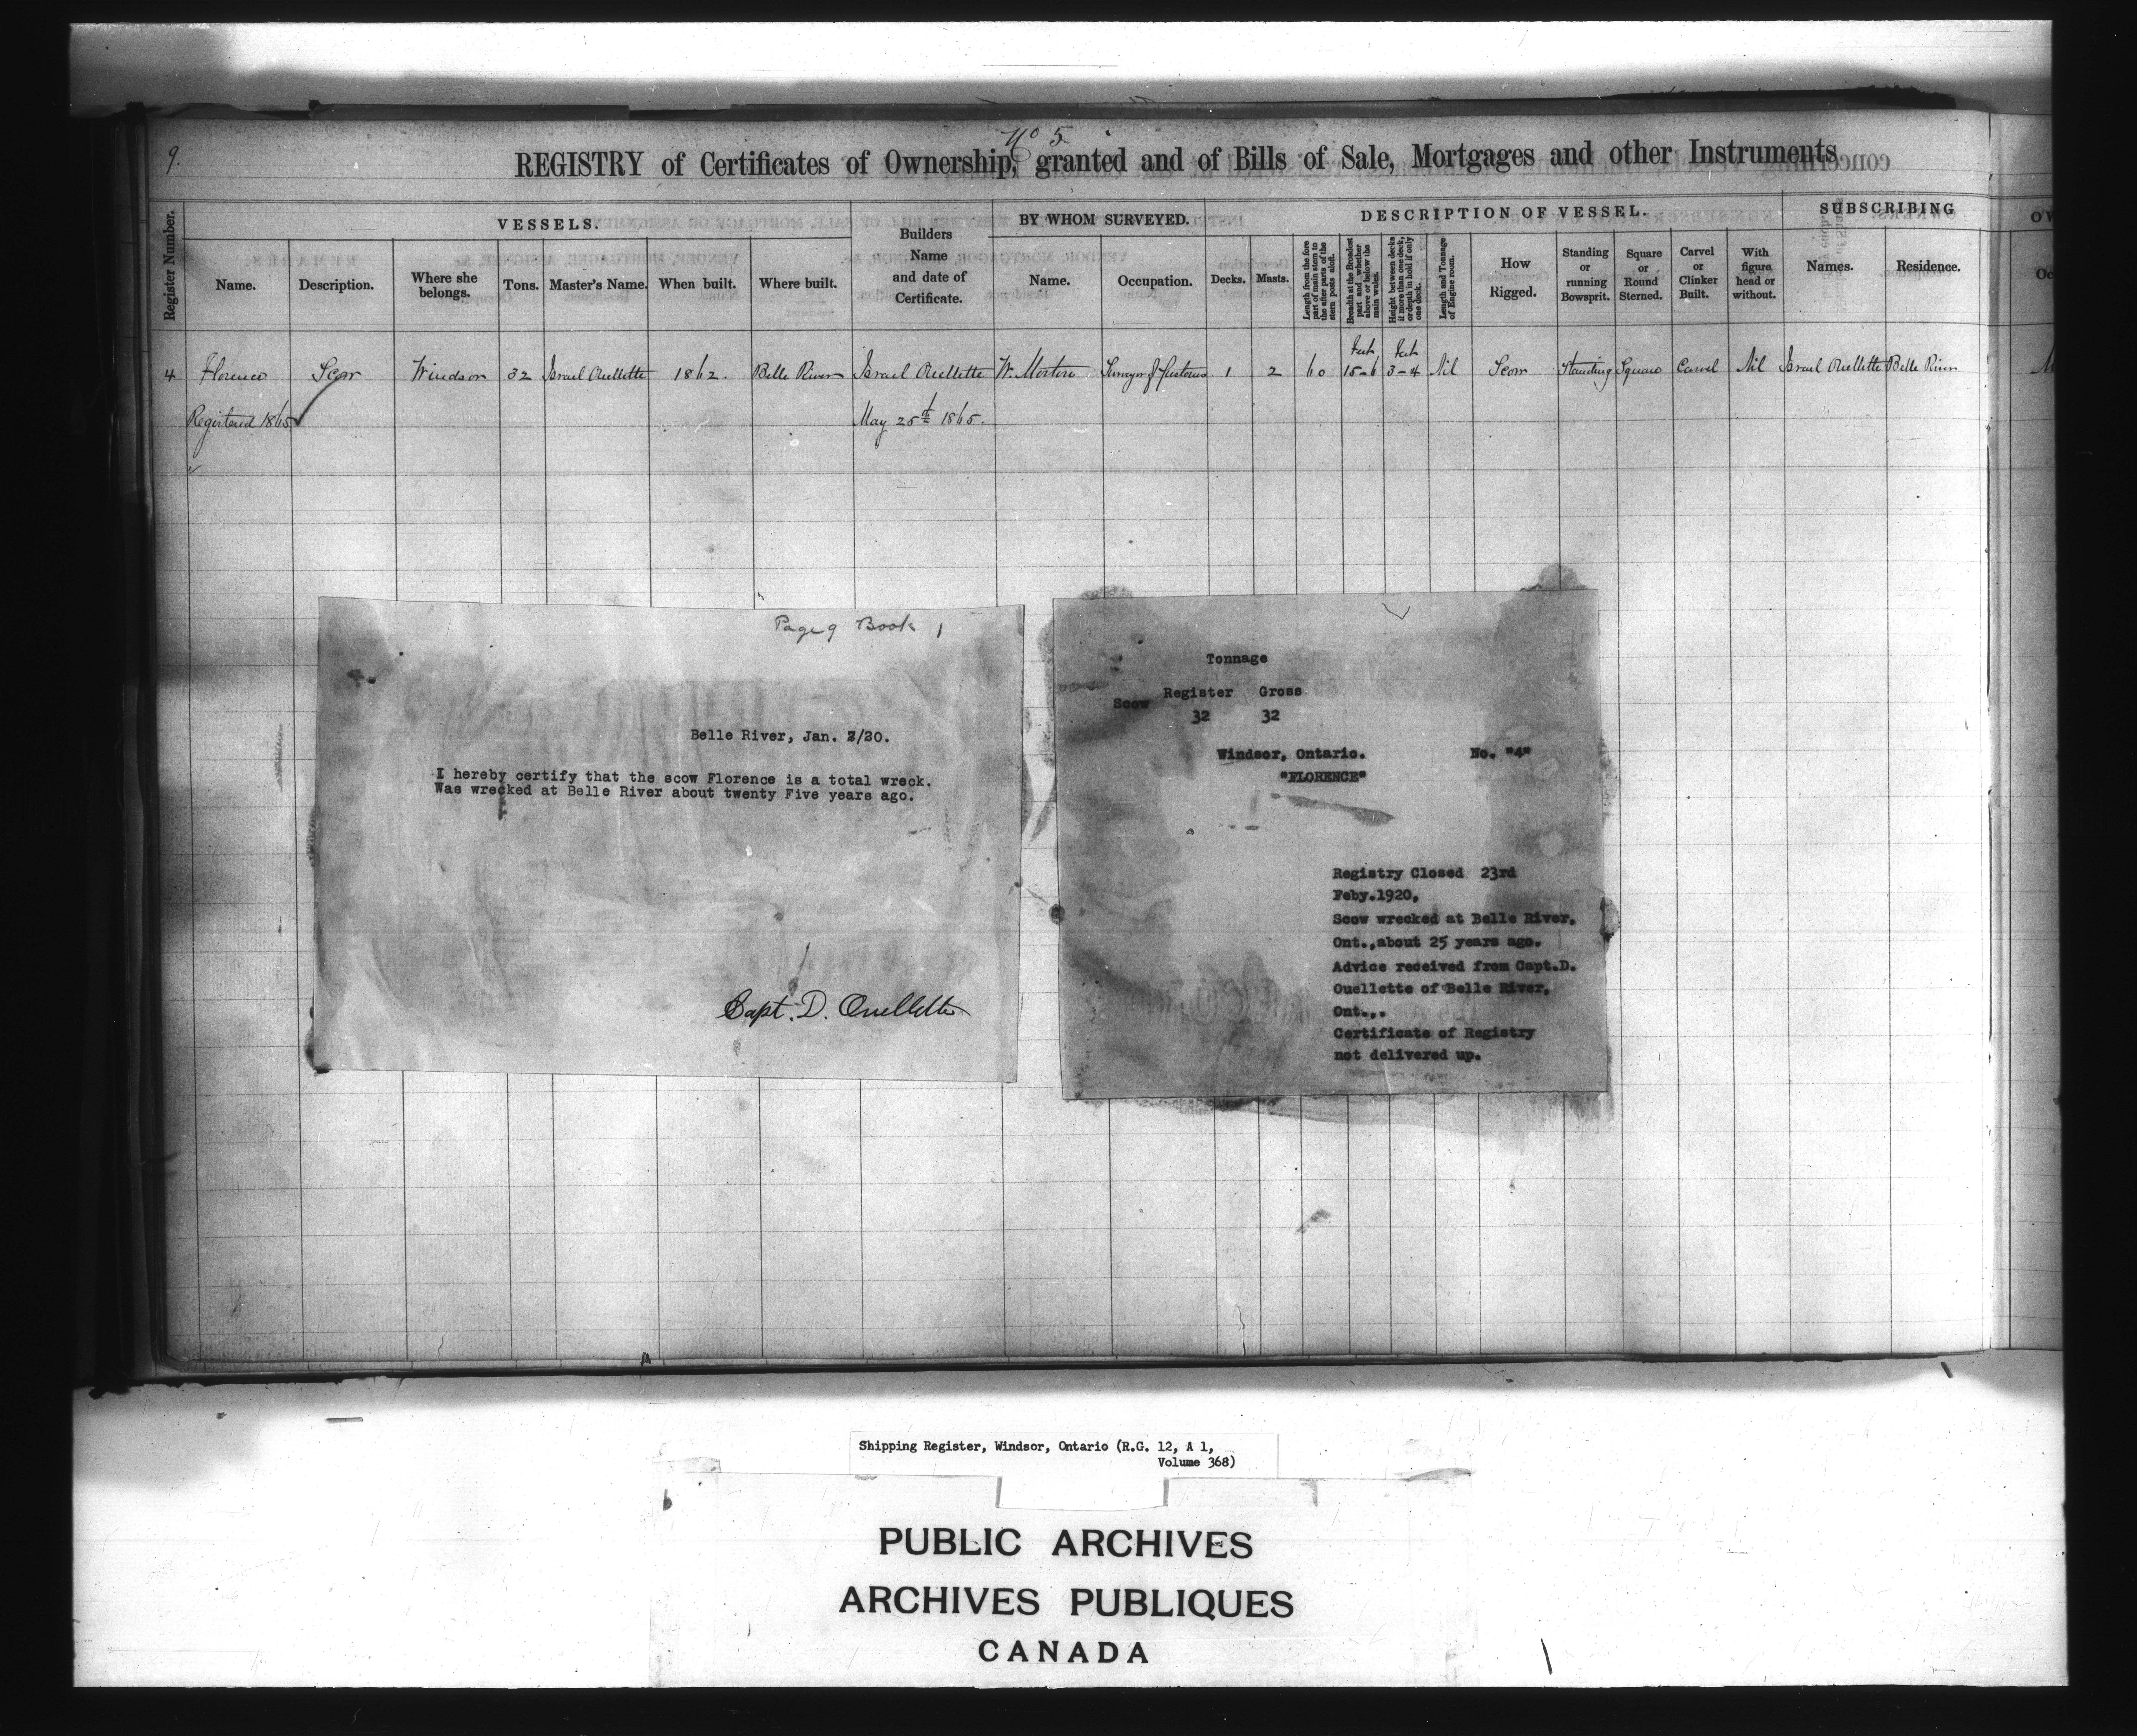 9.
No 5
REGISTRY of Certificates of Ownership, granted and of Bills of Sale, Mortgages and other Instruments
Register Number.
VESSELS.
Name.
Description.
Where she belongs.
Tons.
Master's Name.
When built.
Where built.
Builders Name and date of Certificate.
BY WHOM SURVEYED.
Name.
Occupation.
DESCRIPTION OF VESSEL.
Decks.
Masts.
Length from the fore part of main stem to the after parts of the stern posts aloft.
Breadth at the Broadest part and whether above or below the main wales.
Height between decks if more than one deck, or depth in hold if only one deck.
Length and Tonnage of Engine room.
How Rigged.
Standing or running Bowsprit.
Square or Round Sterned.
Carvel or Clinker Built.
With figure head or without.
SUBSCRIBING
Names.
Residence.
4 Florence Scow Windsor 32 Israel Ouellette 1862. Belle River Israel Ouellette W. Morton Surveyor of Customs 1 2 60 feet 15-6 feet 3-4 Nil Scow Standing Square Carvel Nil Israel Ouellette Belle River
Registered 1865 May 25th 1865.
Page 9 Book 1
Belle River, Jan. /20.
I hereby certify that the scow Florence is a total wreck.
Was wrecked at Belle River about twenty Five years ago.
Capt. D. Ouellette
Tonnage
Register Gross
Scow
32 32
Windsor, Ontario. No. "4"
"FLORENCE"
Registry Closed 23rd
Feby.1920,
Scow wrecked at Belle River,
Ont.,about 25 years ago.
Advice received from Capt.D.
Ouellette of Belle River,
Ont.,.
Certificate of Registry
not delivered up.
Shipping Register, Windsor, Ontario (R.G. 12, A 1,
Volume 368)
PUBLIC ARCHIVES
ARCHIVES PUBLIQUES
CANADA